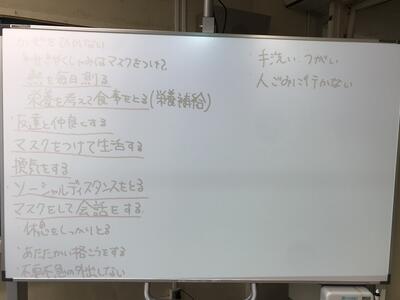 かぜをひかない
せきやくしゃみはマスクをつけて
熱を毎日測る
栄養を考えて食事をとる(栄養補給)
・友達と仲良くする
マスクをつけて生活する
換気をする
・ソーシャルディスタンスをとる
マスクをして会話をする
休息をしっかりとる
・あたたかい格こうをする
・不要不急の外出しない
手洗い うがい
人ごみに行かない